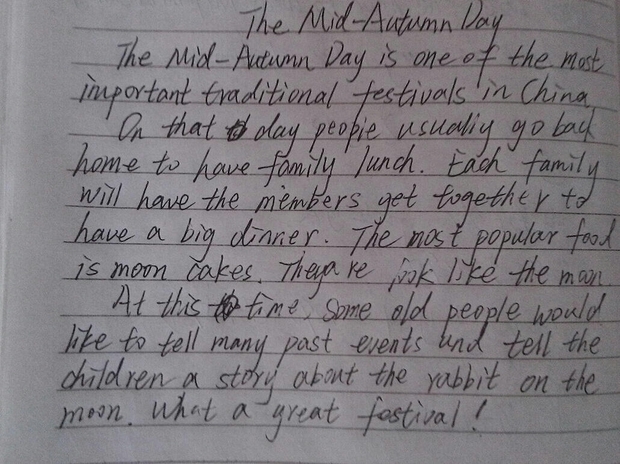 The Mid-Autumn Day
The Mid-Autumn Day is one of the most
important traditional festivals in China
On that day people usually go back
home to have family lunch. Each family
will have the members get together to
have a big dinner. The most popular food
is moon cakes. They are look like the moon.
At this time, some old people would
like to tell many past events und tell the
children a story about the rabbit on the
moon. What a great festival!